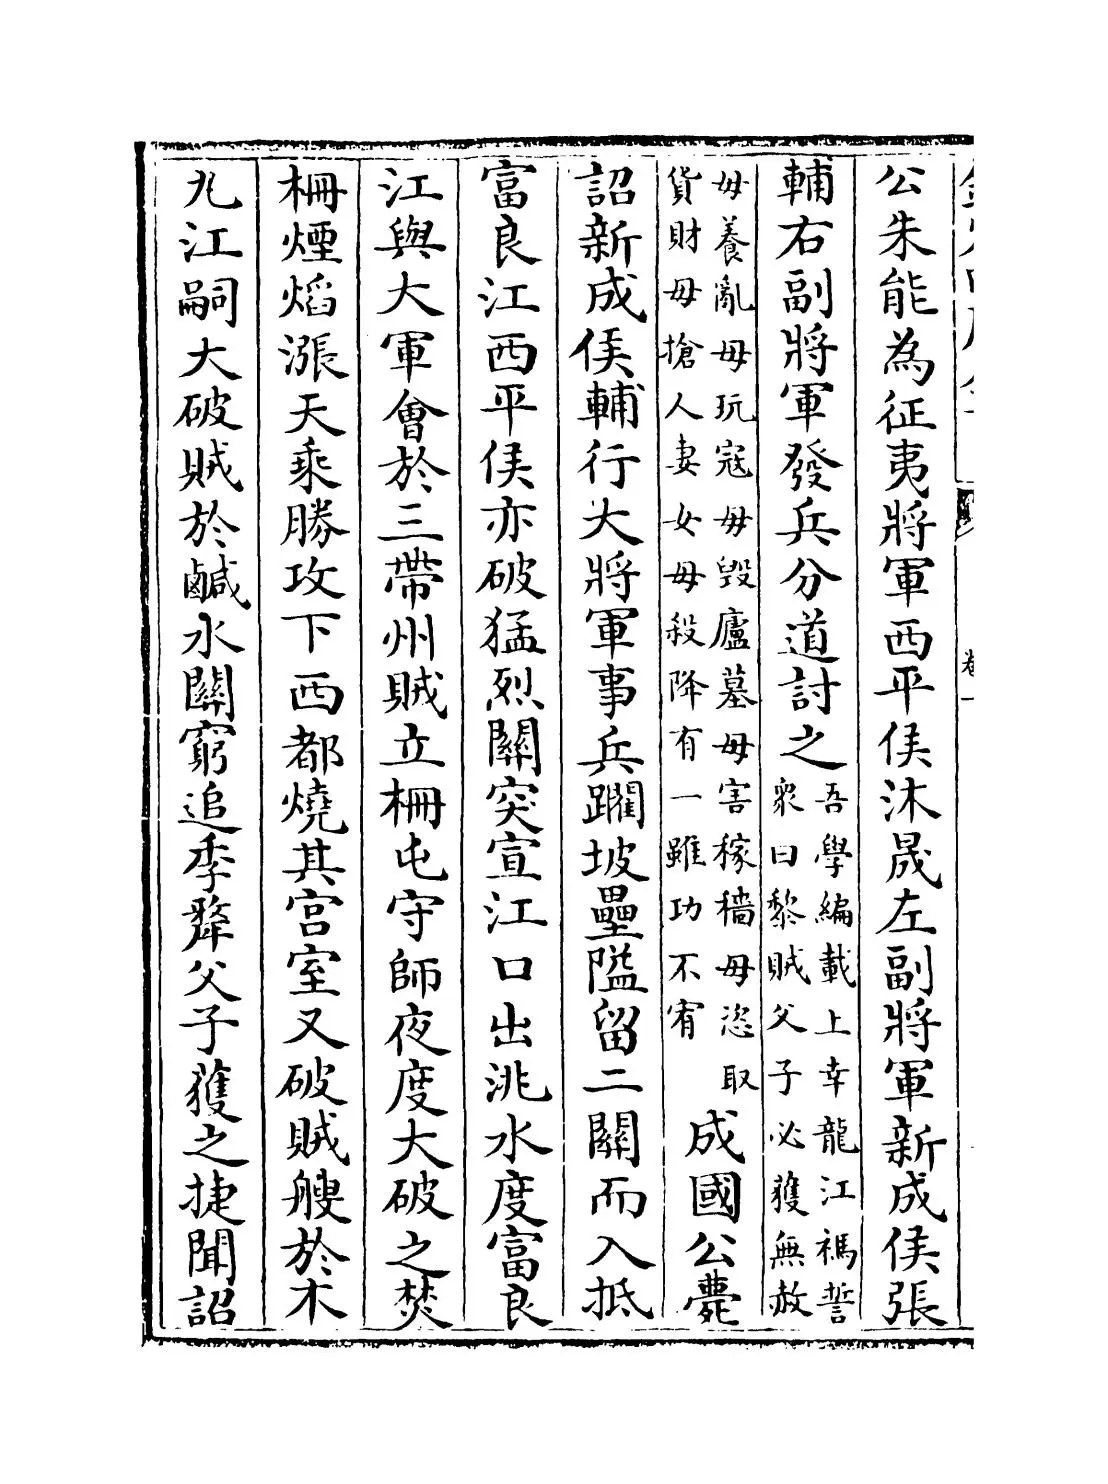 公朱能為征夷將軍西平侯沐晟左副將軍新成侯張
輔右副將軍發兵分道討之
吾學編載上幸龍江禡誓
衆曰黎賊父子必獲無赦
毋養亂毋玩寇毋毁廬墓毋害稼穡毋恣取
貨財毋搶人妻女毋殺降有一雖功不宥
成國公薨
詔新成侯輔行大將軍事兵躙坡壘隘留二關而入抵
富良江西平侯亦破猛烈關突宣江口出洮水度富良
江與大軍會於三帶州賊立柵屯守師夜度大破之焚
柵煙焰漲天乘勝攻下西都燒其宫室又破賊艘於木
九江嗣大破賊於鹹水關窮追季犛父子獲之捷聞詔